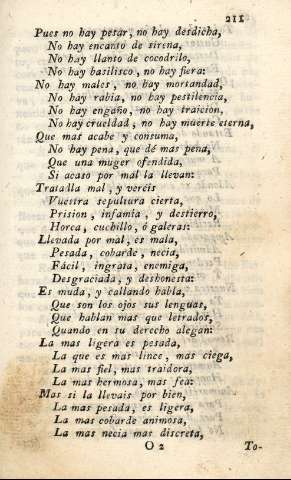 211
Pues no hay pesar, no hay desdicha,
No hay encanto de sirena,
No hay llanto de cocodrilo,
No hay basilisco, no hay fiera:
No hay males, no hay mortandad,
No hay rabia, no hay pestilencia,
No hay engaño, no hay traicion,
No hay crueldad, no hay muerte eterna,
Que mas acabe y consuma,
No hay pena, que dé mas pena,
Que una muger ofendida,
Si acaso por mal la llevan:
Tratalla mal, y vereis
Vuestra sepultura cierta,
Prision, infamia, y destierro,
Horca, cuchillo, ó galeras:
Llevada por mal, es mala,
Pesada, cobarde, necia,
Fácil, ingrata, enemiga,
Desgraciada, y deshonesta:
Es muda, y callando habla,
Que son los ojos sus lenguas,
Que hablan mas que letrados,
Quando en su derecho alegan:
La mas ligera es pesada,
La que es mas lince, mas ciega,
La mas fiel, mas traidora,
La mas hermosa, mas fea:
Mas si la llevais por bien,
La mas pesada, es ligera,
La mas cobarde animosa,
La mas necia mas discreta,
O 2 To-